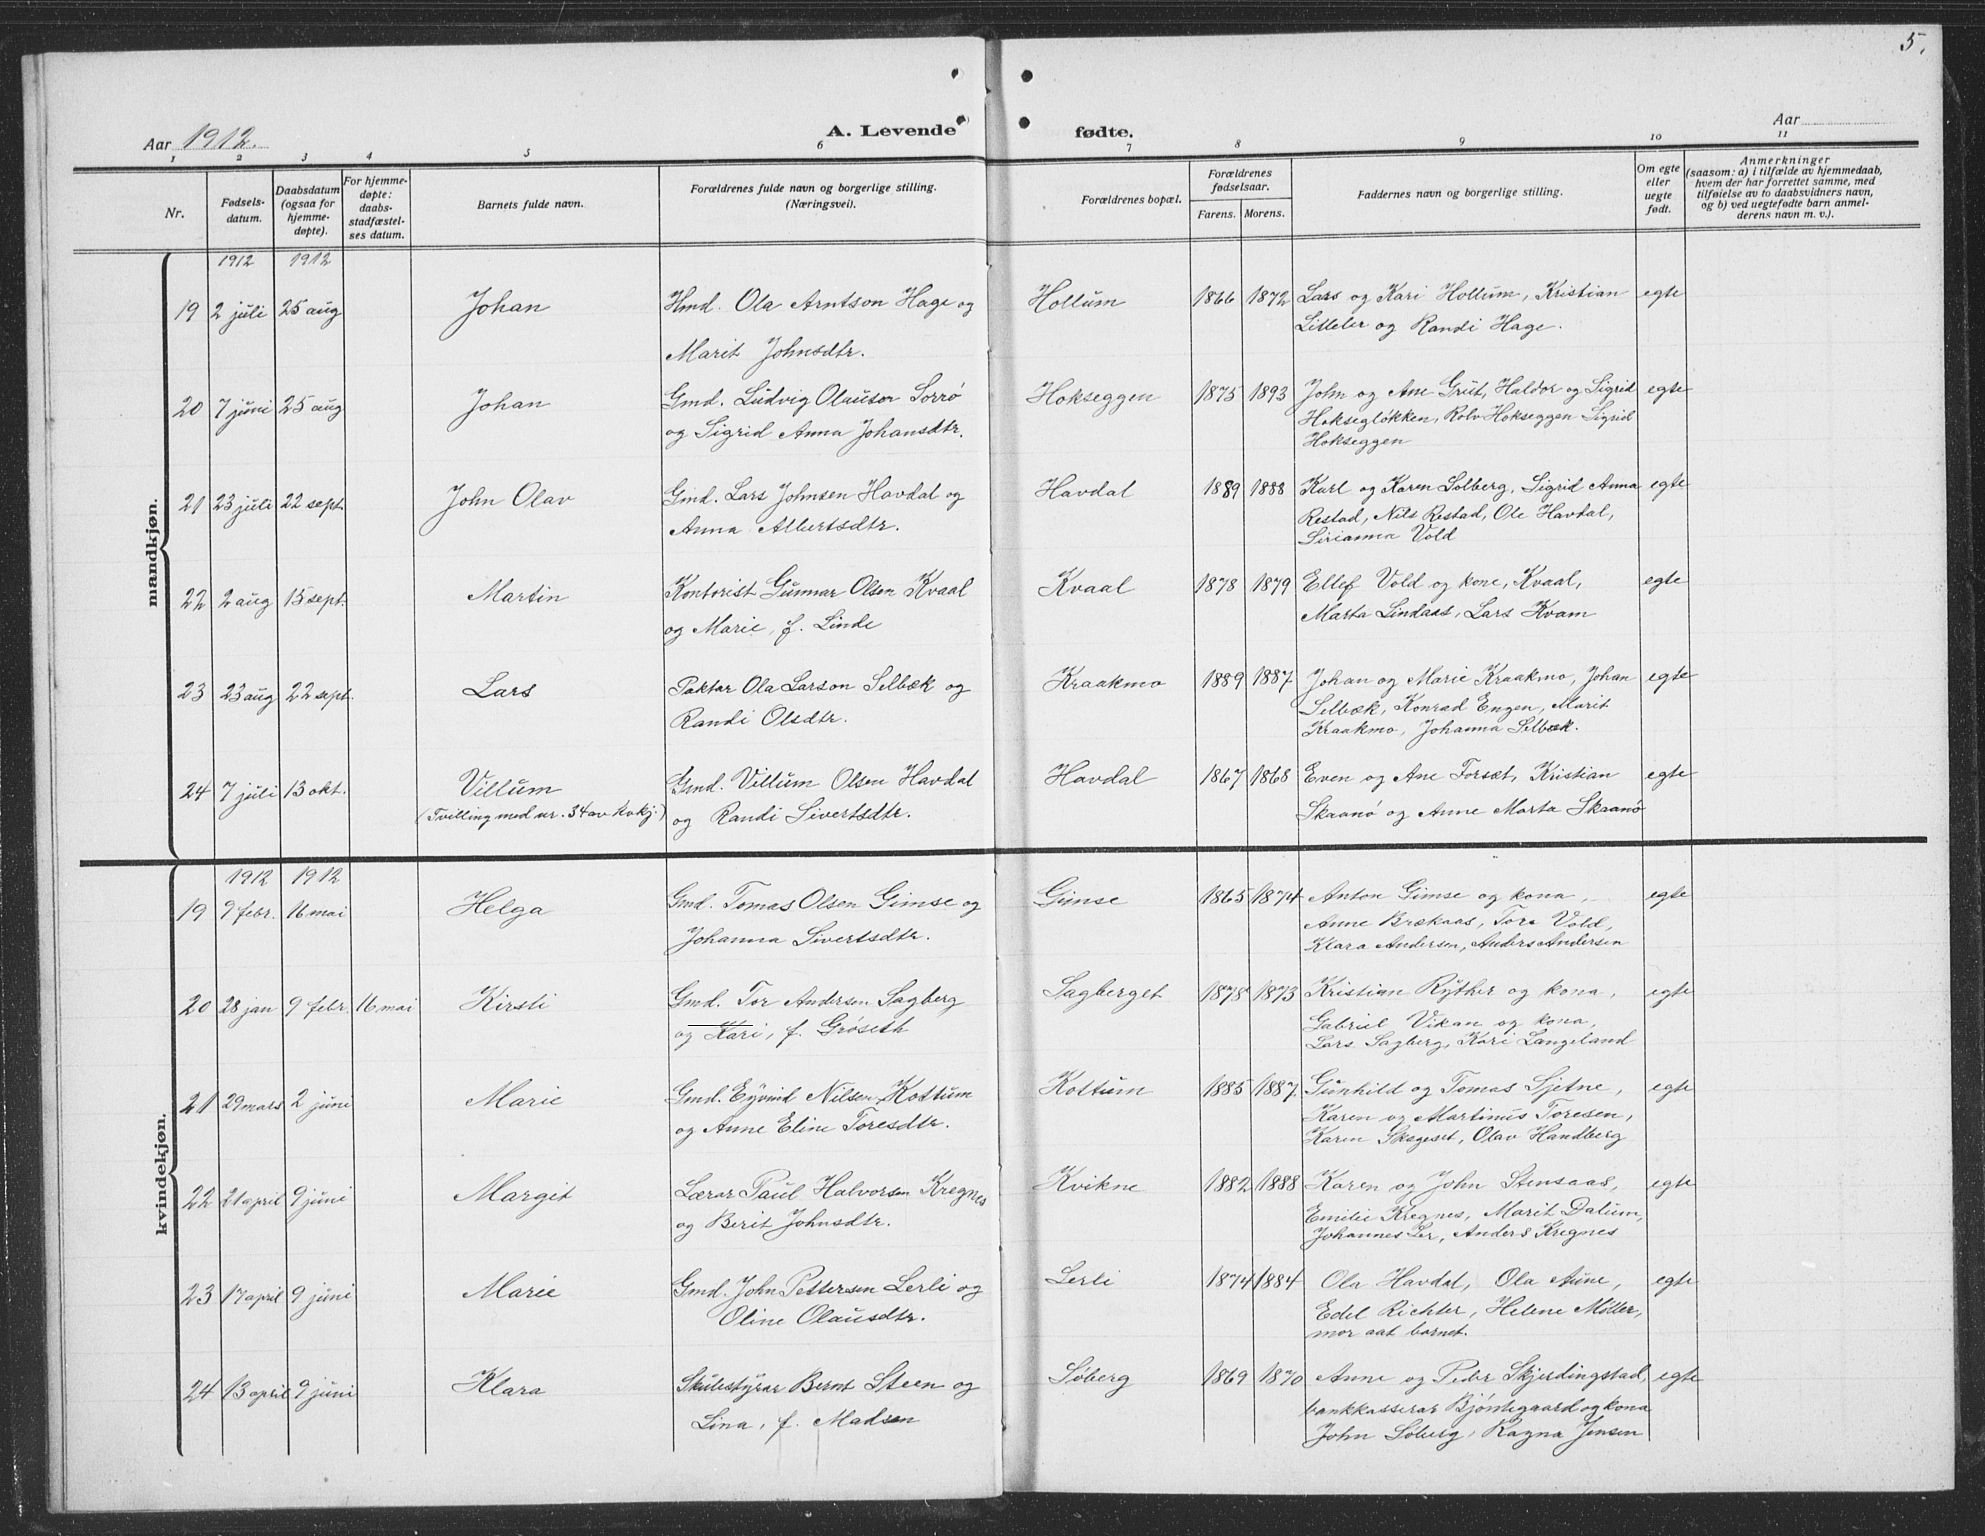 5.
Aar 1912.
A. Levende fødte.
Aar
1 2 3 4 5 6 7 8 9 10 11
Nr.
Fødsels-
datum.
Daabsdatum
(ogsaa for
hjemme-
døpte).
For hjemme-
døpte:
daabs-
stadfæstel-
ses datum.
Barnets fulde navn.
Forældrenes fulde navn og borgerlige stilling.
(Næringsvei).
Forældrenes bopæl.
Forældrenes
fødselsaar.
Farens. Morens.
Faddernes navn og borgerlige stilling.
Om egte
eller
uegte
født.
Anmerkninger
(saasom: a) i tilfælde av hjemmedaab,
hvem der har forrettet samme, med
tilføielse av to daabsvidners navn,
og b) ved uegtefødte barn anmel-
derens navn m. v.).
mandkjøn.
1912 1912
19 2 juli 25 aug Johan Hmd. Ola Arntson Hage og Hollum 1866 1872 Lars og Kari Hollum, Kristian egte
Marit Johnsdtr. Litleler og Randi Hage.
20 7 juni 25 aug Johan Gmd. Ludvig Olauson Sorrø Hokseggen 1875 1893 John og Ane Grut, Haldor og Sigrid egte
og Sigrid Anna Johansdtr. Hoksegløkken, Rolv Hokseggen Sigrid
Hokseggen
21 23 juli 22 sept. John Olav Gmd. Lars Johnsen Havdal og Havdal 1889 1888 Karl og Karen Solberg, Sigrid Anna egte
Anna Albertsdtr. Restad, Nils Restad, Ole Havdal,
Sirianna Vold
22 2 aug 15 sept. Martin Kontorist Gunnar Olsen Kvaal Kvaal 1878 1879 Ellef Vold og kone, Kvaal, egte
og Marie, f. Linde Marta Lindaas, Lars Kvam
23 23 aug 22 sept. Lars Paktar Ola Larson Selbæk og Kraakmo 1889 1887 Johan og Marie Kraakmo, Johan egte
Randi Olsdtr. Selbæk, Konrad Engen, Marit
Kraakmo, Johanna Selbæk.
24 7 juli 13 okt. Villum Gmd. Villum Olsen Havdal Havdal 1867 1868 Even og Ane Forsæt, Kristian egte
(Tvilling med nr. 34 av kvkj.) og Randi Sivertsdtr. Skaanø og Anne Marta Skaanø
kvindekjøn.
1912 1912
19 9 febr. 16 mai Helga Gmd. Tomas Olsen Gimse og Gimse 1865 1874 Anton Gimse og kona, egte
Johanna Sivertsdtr. Anne Brækaas, Tora Vold,
Klara Andersen, Anders Andersen
20 28 jan 9 febr. 16 mai Kirsti Gmd. Tor Andersen Sagberg Sagberget 1878 1873 Kristian Ryther og kona, egte
og Kari, f. Grøseth Gabriel Vikan og kona,
Lars Sagberg, Kari Langeland
21 29 mars 2 juni Marie Gmd. Eyvind Nilsen Kottum Kottum 1885 1887 Gunhild og Tomas Sjetne, egte
og Anne Eline Toresdtr. Karen og Martinus Toresen,
Karen Skogeset, Olav Handberg
22 21 april 9 juni Margit Lærar Paul Halvorsen Kregnes Kvikne 1882 1888 Karen og John Stensaas, egte
og Berit Johnsdtr. Emilie Kregnes, Marit Dalum,
Johannes Ler, Anders Kregnes
23 17 april 9 juni Marie Gmd. John Pettersen Lerli og Lerli 1874 1884 Ola Havdal, Ola Aune, egte
Oline Olausdtr. Edel Richter, Helene Møller,
mor aat barnet.
24 13 april 9 juni Klara Skulestyrar Bernt Steen og Søberg 1869 1870 Anne og Peder Skjerdingstad, egte
Lina, f. Madsen bankkasserar Bjøntegaard og kona
John Søberg, Ragna Jensen